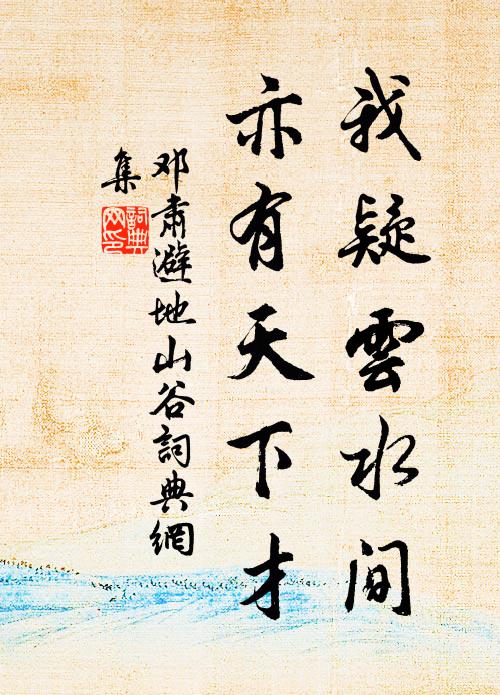 我疑雲水间
亦有天下才
邓肅避地山谷詞典網
集
詞典网印